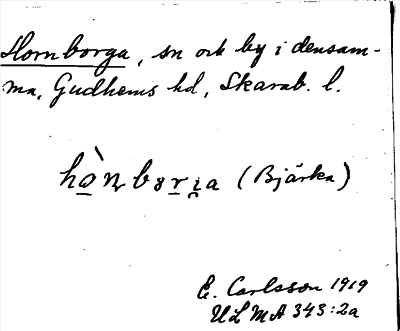 Hornborga, sn och by i densam-
ma, Gudhems hd, Skarab. l.
hò̲ɳborı̯a (Bjärka)
E. Carlsson 1919
ULMA 343:2a